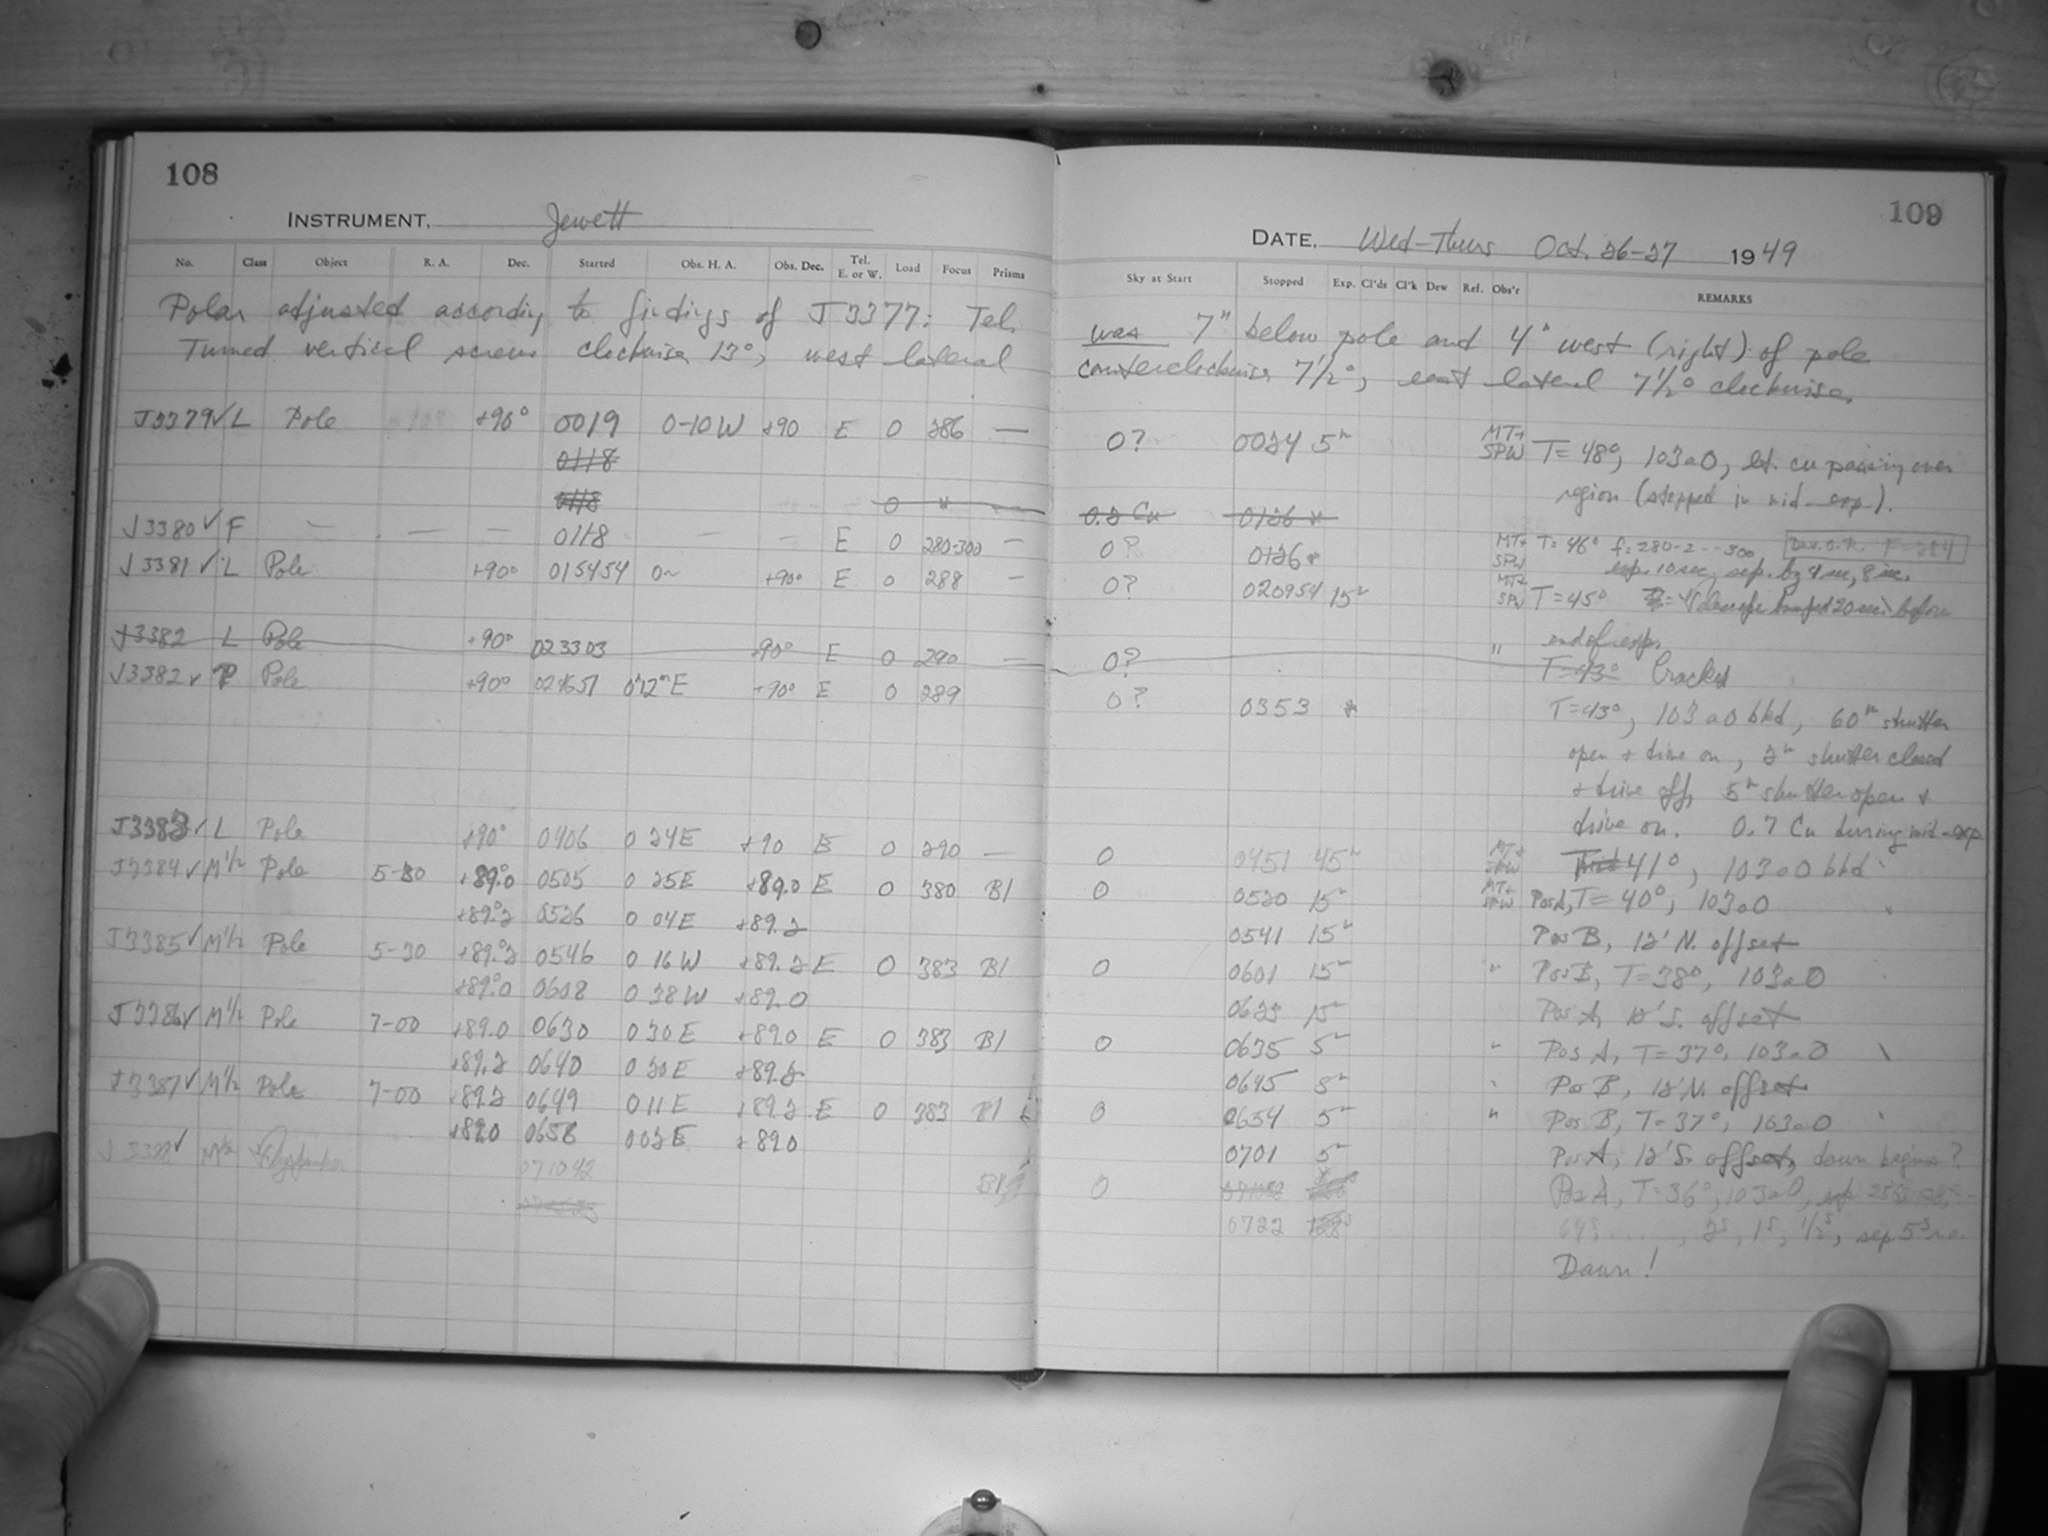 108
INSTRUMENT. Jewett
No. Class Object R. A. Dec. Started Obs. H. A. Obs. Dec. Tel. E. or W. Load Focus Prisms
Polar adjusted according to findings of J3377: Tel.
Turned vertical screw clockwise 13°, west lateral
J3379 ✓ L Pole +90° 0019 0-10W +90 E 0 286 —
0118
0118 0 " —
J3380 ✓ F — — — 0118 — — E 0 280-300 —
J3381 ✓ L Pole +90° 015454 0~ +90° E 0 288 —
J3382 L Pole +90° 023303 +90° E 0 290 —
J3382 ✓ P Pole +90° 024651 0h12mE +90° E 0 289
J3383 ✓ L Pole +90° 0406 0 24E +90 E 0 290 —
J3384 ✓ M1/2 Pole 5-30 +89.°0 0505 0 25E +89.0 E 0 380 B1
+89.°2 0526 0 04E +89.2
J3385 ✓ M1/2 Pole 5-30 +89.°2 0546 0 16W +89.2 E 0 383 B1
+89.°0 0608 0 38W +89.0
J3386 ✓ M1/2 Pole 7-00 +89.0 0630 0 30E +89.0 E 0 383 B1
+89.2 0640 0 20E +89.2
J3387 ✓ M1/2 Pole 7-00 +89.2 0649 0 11E +89.2 E 0 383 B1
+89.0 0656 0 02E +89.0
J3388 ✓ M1/2 071042 B1
109
DATE. Wed-Thurs Oct. 26-27 1949
Sky at Start Stopped Exp. Cl'ds Cl'k Dew Ref. Obs'r REMARKS
was 7" below pole and 4" west (right) of pole
counterclockwise 7 1/2°, east lateral 7 1/2° clockwise.
0? 0024 5m MT+ SPW T = 48°, 103aO, lt. cu passing over
region (stopped in mid-exp).
0.2 Cu 0126 *
0? 0126 * MT+ SPW T = 46° f = 280-2---300, Dev. O.K. F=284
exp. 10 sec, sep. by 4 sec, 8 sec.
0? 020954 15m MT+ SPW T = 45° Telescope bumped 20 sec before
end of exp.
0? " T=43° Cracked
0? 0353 * T=43°, 103aO bkd, 60m shutter
open + drive on, 2m shutter closed
+ drive off, 5m shutter open +
drive on. 0.7 Cu during mid-exp
0 0451 45m MT+ SPW 41°, 103aO bkd
0 0520 15m MT+ SPW Pos A, T= 40°, 103aO
0541 15m Pos B, 12' N. offset
0 0601 15m " Pos B, T=38°, 103aO
0623 15m Pos A, 12' S. offset
0 0635 5m " Pos A, T=37°, 103aO
0645 5m Pos B, 12' N. offset
0 0654 5m " Pos B, T=37°, 103aO
0701 5m Pos A, 12' S. offset, dawn begins?
0 Pos A, T=36°, 103aO, exp.
0722 64s, ......, 2s, 1s, 1/2s, sep 5s
Dawn!